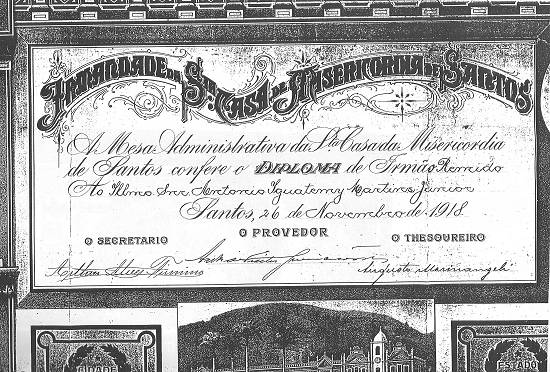 IRMANDADE DA Sta CASA DE MISERICORDIA DE SANTOS
A Mesa Administrativa da Sta Casa da Misericordia
de Santos confere o DIPLOMA de Irmão Remido
Ao Illmo Snr Antonio Iguatemy Martins Junior
Santos, 26 de Novembro de 1918
O SECRETARIO O PROVEDOR O THESOUREIRO
Augusto Marinangeli
CIDADE ESTADO